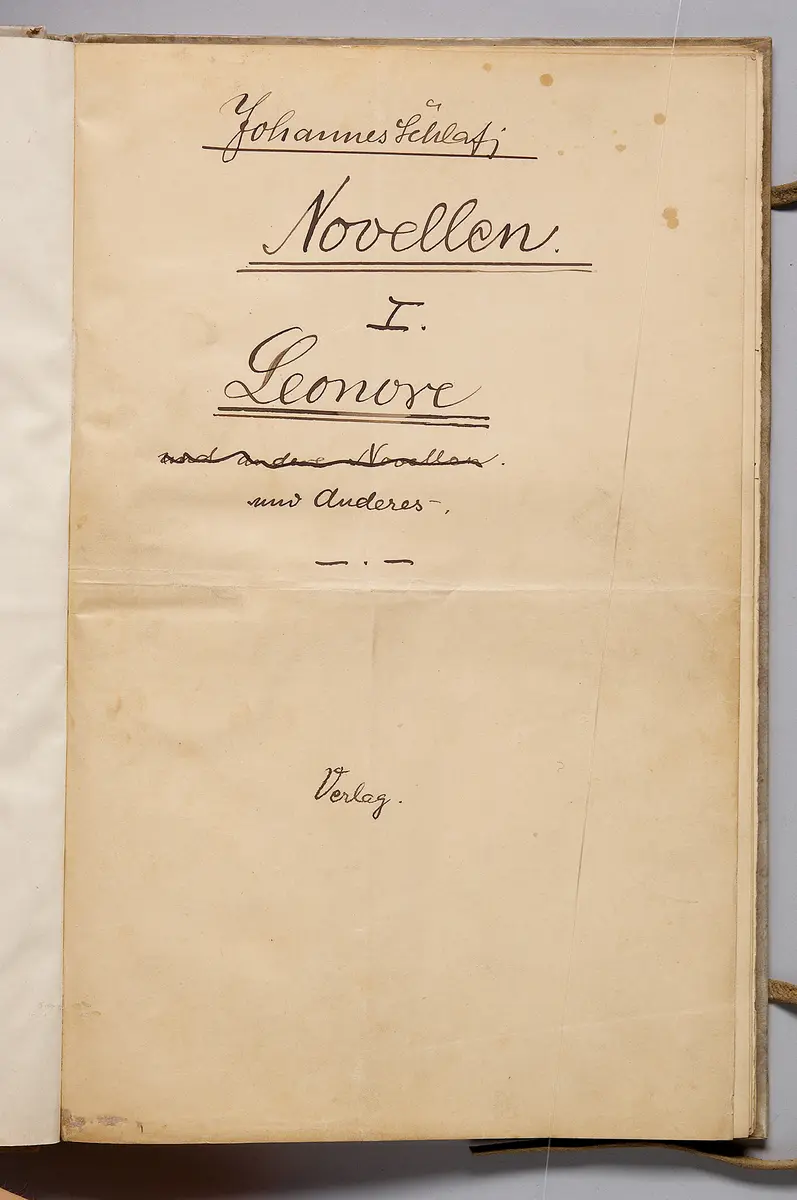 Johannes Schlaf
Novellen.
I.
Leonore
und andere Novellen.
und Anderes -.
— . —
Verlag.